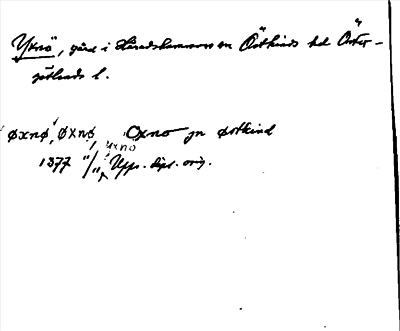 Yxnö, gård i Häradshammars sn Östkinds hd Öster-
götlands l.
øxnø, øxnø, Oxno jn østkind
yxno
1377 11/11 Upps. dipl. orig.